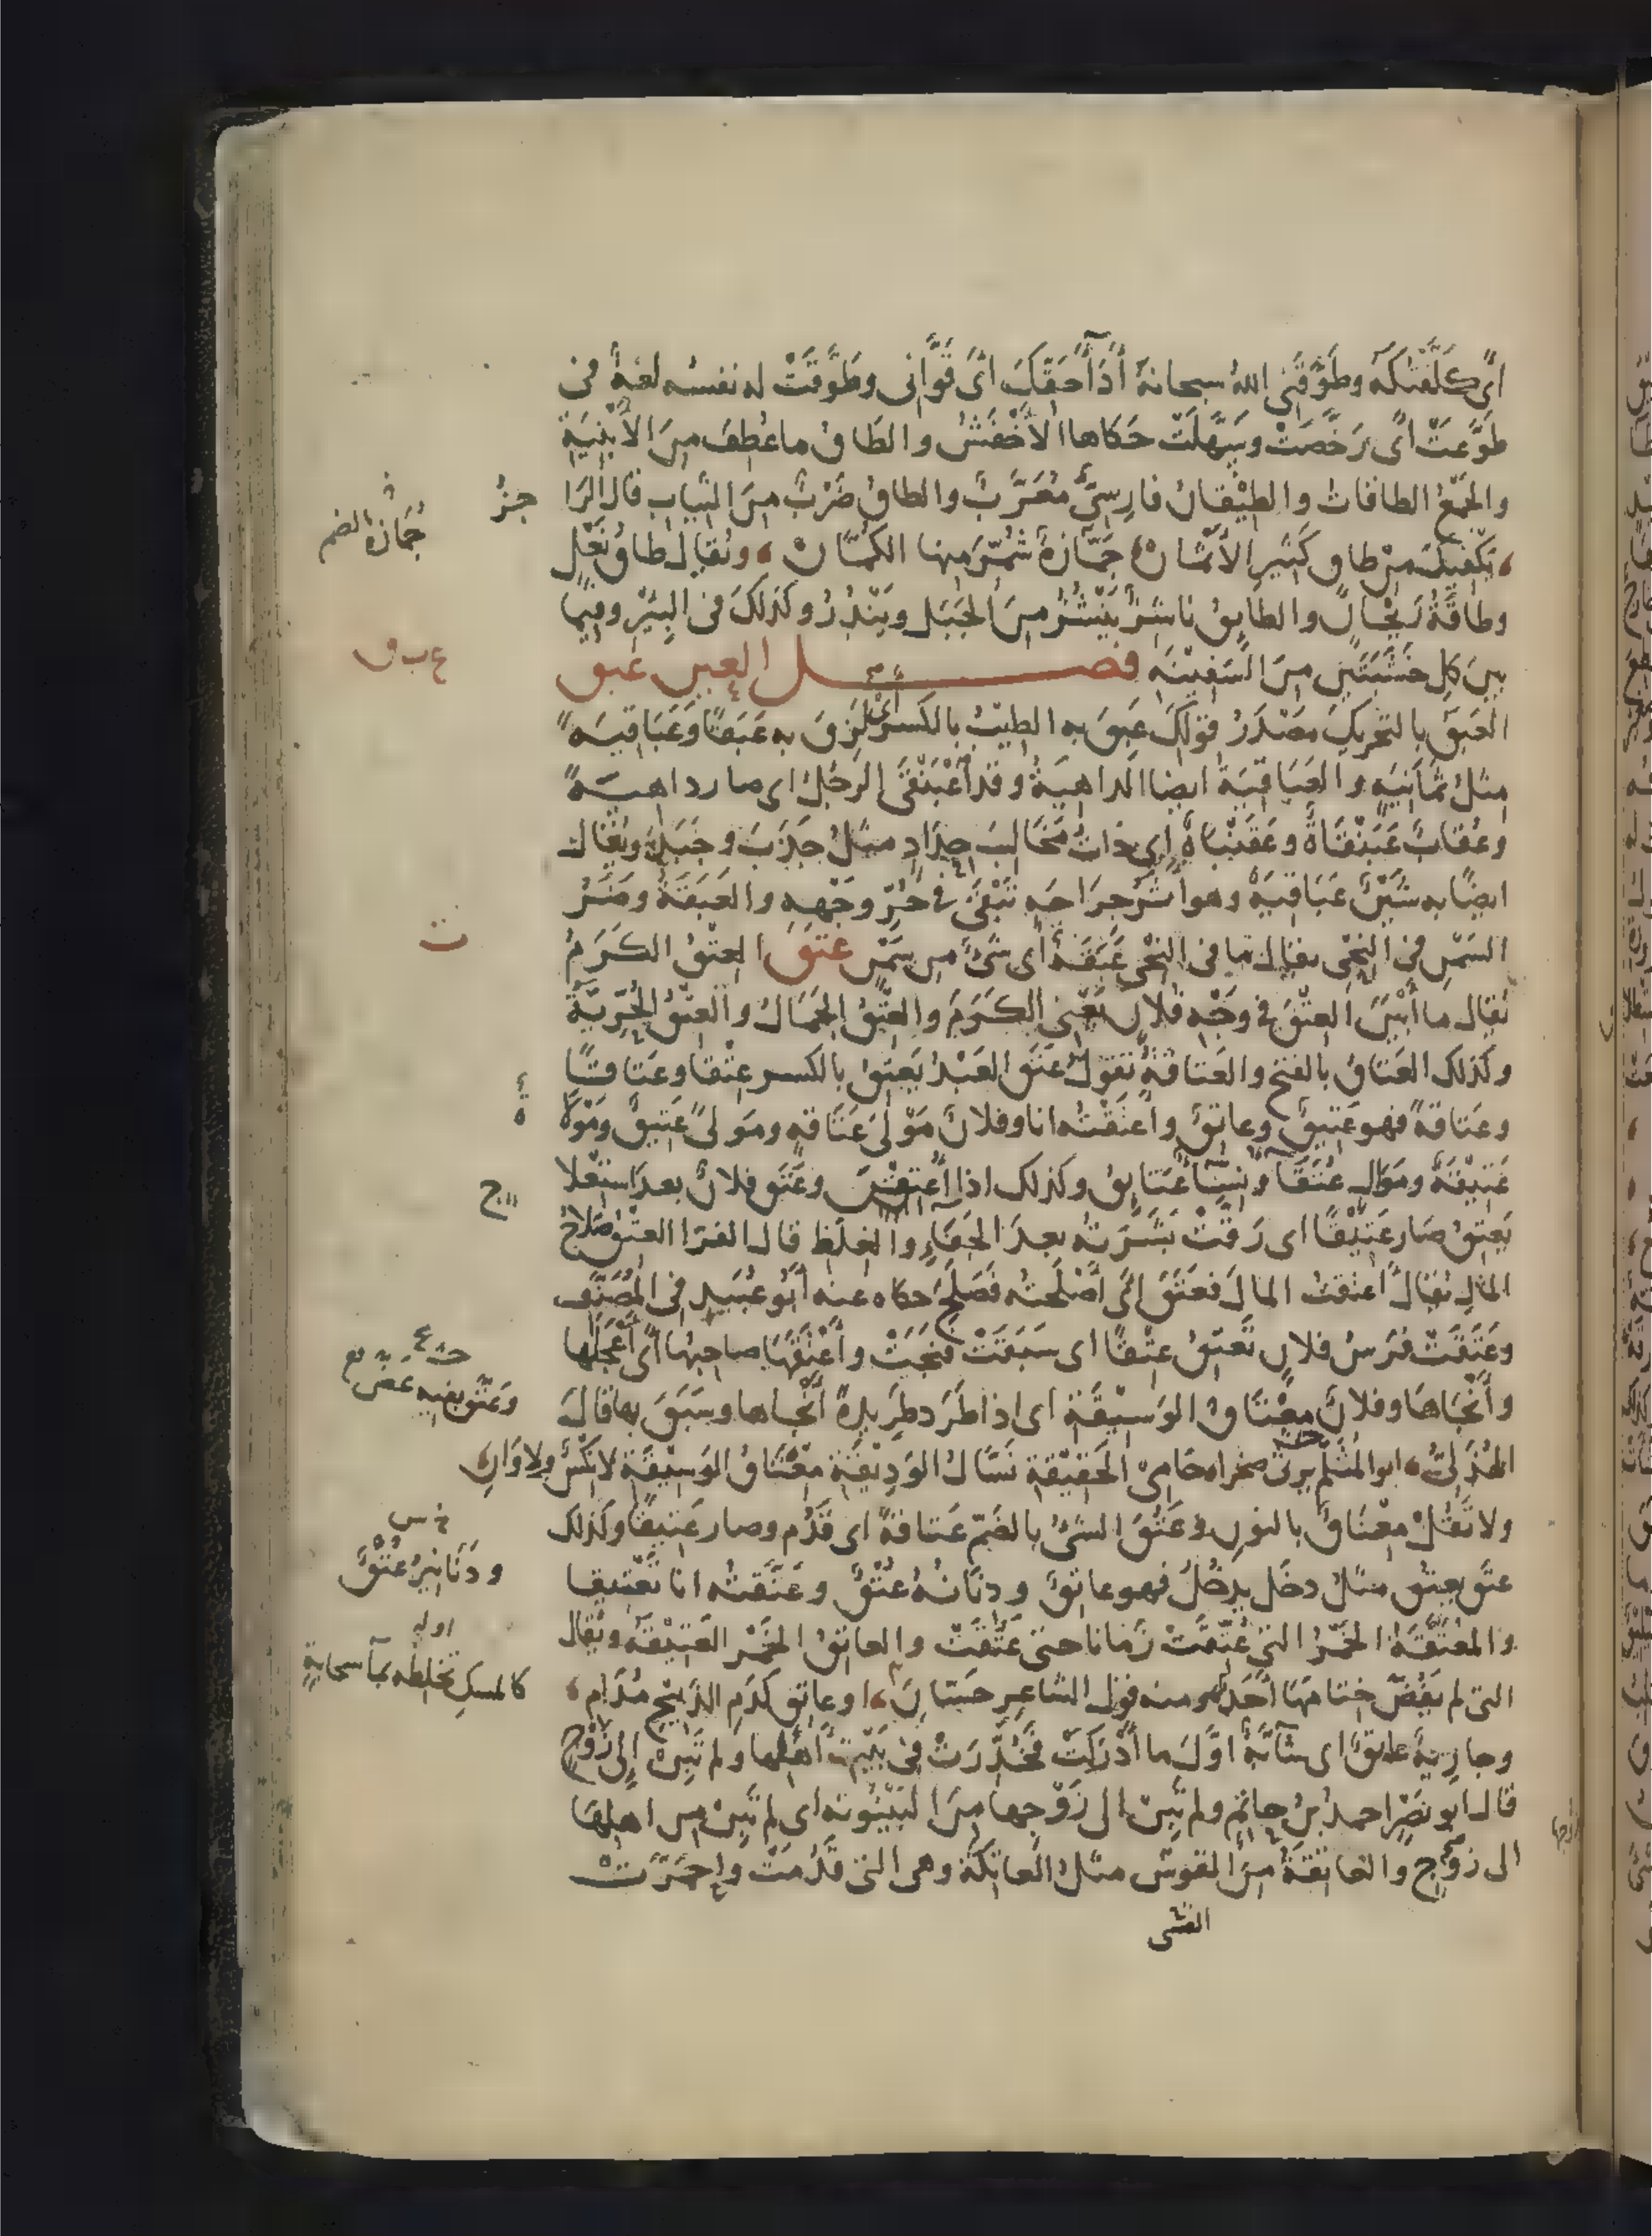 اى كَلَّفْتُكَهُ وطَوَّقَنِى اللهُ سبحانهُ أَدَآءَ حَقِّكَ اىْ قَوَّانى وطَوَّقَتْ له نفسُه لغةٌ فى
طَوَّعَتْ اىْ رَخَّصَتْ وسَهَّلَتْ حَكَاها الأَخْفَشُ والطَاقُ ما عُطِفَ مِنَ الأَبْنِيَةِ
والجَمْعُ الطاقاتُ والطِيْقَانُ فارِسِىٌّ مُعَرَّبٌ والطاقُ ضَرْبٌ مِنَ الثِيَابِ قال الرَا جِزُ
، يَكْفِيكَ مِنْ طاقٍ كَثِيرِ الأَثْمَانْ ، جُمَّازَةٌ شُمِّرَ مِنها الكُمَّانْ ، ويُقال طاقُ نَعْلٍ
وطاقَةُ رَيْحَانٍ والطائِقُ ناشِزٌ يَنْشُزُ مِنَ الجَبَلِ ويَنْدُرُ وكذلكَ فى البِئْرِ وفيما
بينَ كلِ خَشَبَتَيْنِ مِنَ السَفِيْنَةِ فصـــل العين عبق
العَبَقُ بالتحريكِ مصْدَرُ قولكَ عَبِقَ به الطيْبُ بالكسرِ اىْ لَزِقَ به عَبَقًا وعَبَاقِيَةً
مثلُ ثَمَانِيَةٍ والعَبَاقِيَةُ ايضا الداهِيَةُ وقد اعْبَنْقَى الرَجُلُ اى صار داهيةً
وعُقابٌ عَبَنْقَاةٌ وعَقَنْبَاةٌ اى ذاتُ مَخَالِبَ حِدَادٍ مثلُ جَذَبَ وجَبَذَ ويُقالُ
ايضًا به شَيْنٌ عَبَاقِيَةٌ وهو اثَرُ جِرَاحَةٍ تَبْقَى فى حُرِّ وجْهِهِ والعَبَقَةُ وضَرُ
السَمْنِ فى النِحْىِ يقالُ ما فى النِحْىِ عَبَقَةٌ أى شىْءٌ من سَمْنٍ عتق العِتْقُ الكَرَمُ
يُقال ما أَبْيَنَ العِتْقَ فى وجْهِ فلانٍ يَعْنِى الكَرَمَ والعِتْقُ الجَمَالُ والعِتْقُ الحُرِّيَّةُ
وكذلك العَتَاقُ بالفتح والعَتاقةُ تقولُ عَتَقَ العَبْدُ يَعْتِقُ بالكسرِ عِتْقًا وعَتَاقًا
وعَتَاقَةً فهو عَتِيقٌ وعاتِقٌ واَعْتَقْتُه انا وفلانٌ مَوْلَى عَتَاقَةٍ ومَوْلىً عَتِيقٌ ومَوْلاةٌ
عَتِيْقَةٌ ومَوَالٍ عُتَقَآءُ ونِسَآءٌ عَتَائِقُ وكذلك اذا اُعْتِقْنَ وعَتَقَ فلانٌ بعدَ استِعْلا ج
يَعْتِقُ صَار عَتِيْقًا اى رَقَّتْ بَشَرَتُه بعدَ الجَفَاءِ والغِلَظِ قال الفَرّا العِتْقُ صَلاحُ
المَالِ يُقالُ اَعْتَقْتُ المالَ فعَتَقَ اىْ اَصْلَحْتُه فصَلَحَ حكاه عنه أبو عُبَيدٍ فى المُصَنَّف
وعَتَقَتْ فَرَسُ فلانٍ تَعْتِقُ عِتْقًا اى سَبَقَتْ فنَجَتْ وأَعْتَقَهَا صاحِبُها اىْ أَعْجَلَها
وأَنْجَاهَا وفلانٌ مِعْتَاقُ الوَسِيْقَةِ اى اذا طَرَدَ طَرِيدَةً أَنْجَاها وسَبَقَ بها قالَ
الهُذَلِىُّ ، ابو المُثَلَّمِ يرثى صخرا ، حَامِى الحَقِيْقَةِ نَسَّالُ الوَدِيْقَةِ مِعْتَاقُ الوَسِيْقَةِ لا نِكْسٌ ولا وَانِ ،
ولا تَقُلْ مِعْنَاقٌ بالنونِ وعَتُقَ الشىْءُ بالضَمِّ عَتاقةً اى قَدُمَ وصار عَتِيقًا وكذلك
عتَقَ يعتُقُ مثلُ دخَل يدخُلُ فهو عاتِقٌ ودنانيرُ عُتُقٌ وعَتَّقْتُه انا تَعْتِيقا
والمُعَتَّقَةُ الخَمْرُ التى عُتِّقَتْ زمانا حتى عَتُقَتْ والعاتِقُ الخَمْرُ العَتِيْقَةُ ويُقال
التى لم يَفُضَّ خِتامَهَا أحَدٌ ومنه قولُ الشاعِرِ حَسَّانَ ، او عاتِقٍ كدَمِ الذَبِيْحِ مُدَامِ ،
وجارِيةٌ عاتِقٌ اى شآبَّةٌ أوَّلَ ما أَدْرَكَتْ فخُدِّرَتْ فى بَيْتِ أَهْلِها ولم تَبِنْ إلى زَوْجٍ
قال ابو نَصْرٍ احمدُ بنُ حاتِمٍ ولم تَبِنْ الى زَوْجِها مِنَ البَيْنُونَةِ اى لم تَبِنْ من اهلِها
الى زوْجٍ والعَاتِقَةُ مِنَ القَوْسِ مثلُ العاتِكَةِ وهى التى قَدُمَتْ واحْمَرَّتْ
القسى
جُمَازة بالضم
ع ب ق
ت
وعَتَقَ بفيه عَضَّ
ودَنَانِيرُ عُتْقٌ
اوله
كالمسكِ تخلِطُه بمآءِ سحابةٍ